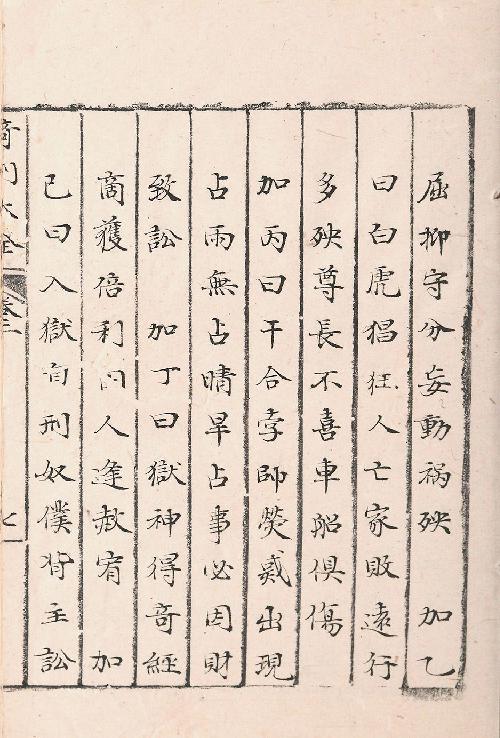 屈抑守分妄動禍殃　加乙
曰白虎猖狂人亡家敗遠行
多殃尊長不喜車船俱傷
加丙曰干合孛師熒惑出現
占雨無占晴旱占事必因財
致訟　加丁曰獄神得奇經
商獲倍利囚人逢赦宥　加
己曰入獄自刑奴僕背主訟
奇門大全 卷三
七